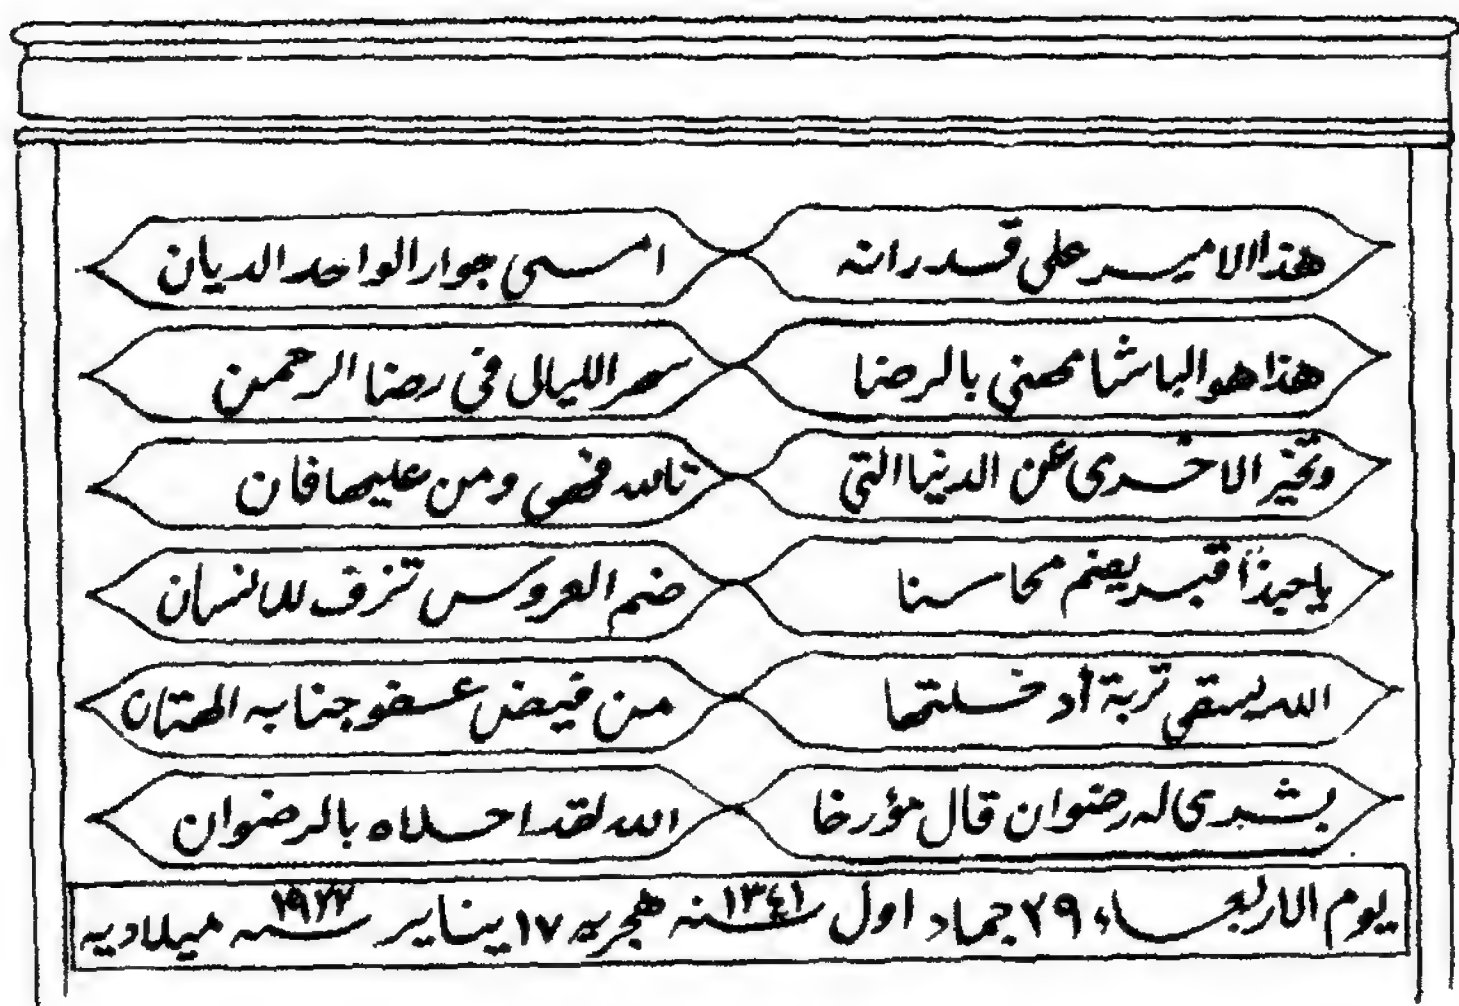 هذا الامير على قدر انه امسى جوار الواحد الديان
هذا هو الباشا مهني بالرضا سهر الليالى فى رضا الرحمن
وتخير الاخرى عن الدنيا التي تالله فهي ومن عليها فان
ياحبذا قبر يضم محاسنا ضم العروس تزف للانسان
الله يسقي تربة أدخلتها من فيض عفو جنابه الهتان
بشرى له رضوان قال مؤرخا الله لقد احلاه بالرضوان
يوم الاربعاء ٢٩ جماد اول سنه ١٣٤١ هجريه ١٧ يناير سنه ١٩٢٣ ميلاديه